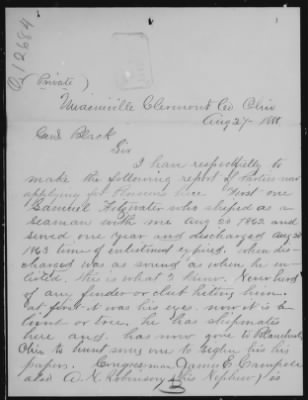 Q12684
(Private)
Miamiville Clermont Co Ohio
Aug 27 - 188
Genl Black
Sir
I have respectfully to
make the following report of parties now
applying for Pensions here First one
Samuel Fitzwater who shiped as a
Seaman with me Aug 20 1862 and
served one year and discharged Aug 20
1863 time of enlistment expired. when dis
charged was as sound as when he en
listed, this is what I know, Never heard
of any finder or clest hiting him.
at first it was his eyes now it is a
limb or tree. he has shipmates
here and has now gone to Blanchester
Ohio to hunt some one to
papers. Congressman James E Campbell
and A. K. Robinson his Nephew is